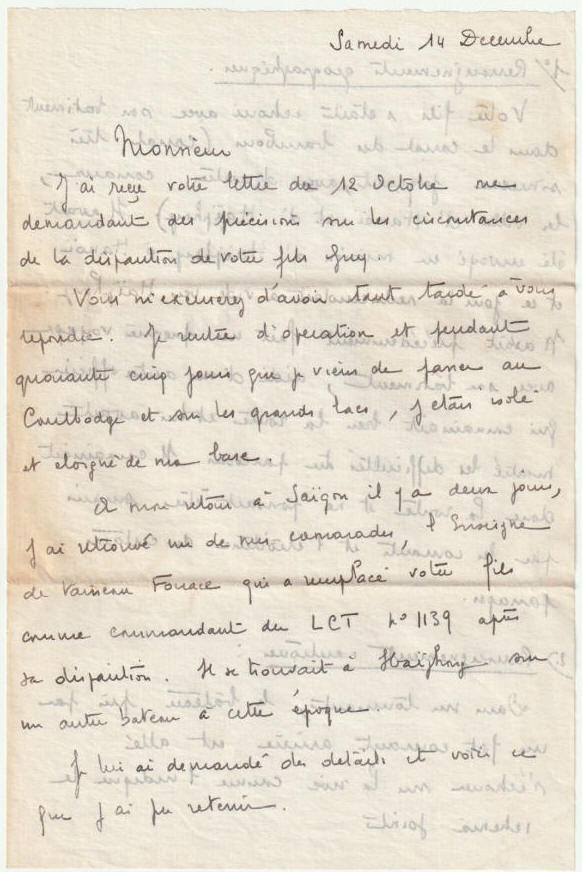 Samedi 14 Decembre
Monsieur
J'ai reçu votre lettre du 12 Octobre me
demandant des précisions sur les circonstances
de la disparution de votre fils Guy.
Vous m'excuserez d'avoir tant tardé à vous
repondre. Je rentre d'operation et pendant
quarante cinq jours que je viens de passer au
Cambodge et sur les grands lacs, j'etais isolé
et eloigné de ma base.
A mon retour à Saïgon il y a deux jours,
j'ai retrouvé un de mes camarades, l'Enseigne
de Vaisseau Fouace qui a remplacé votre fils
comme commandant du LCT n° 1139 après
sa disparution. Il se trouvait à Haiphong sur
un autre bateau à cette époque
Je lui ai demandé des details et voici ce
que j'ai pu retenir.